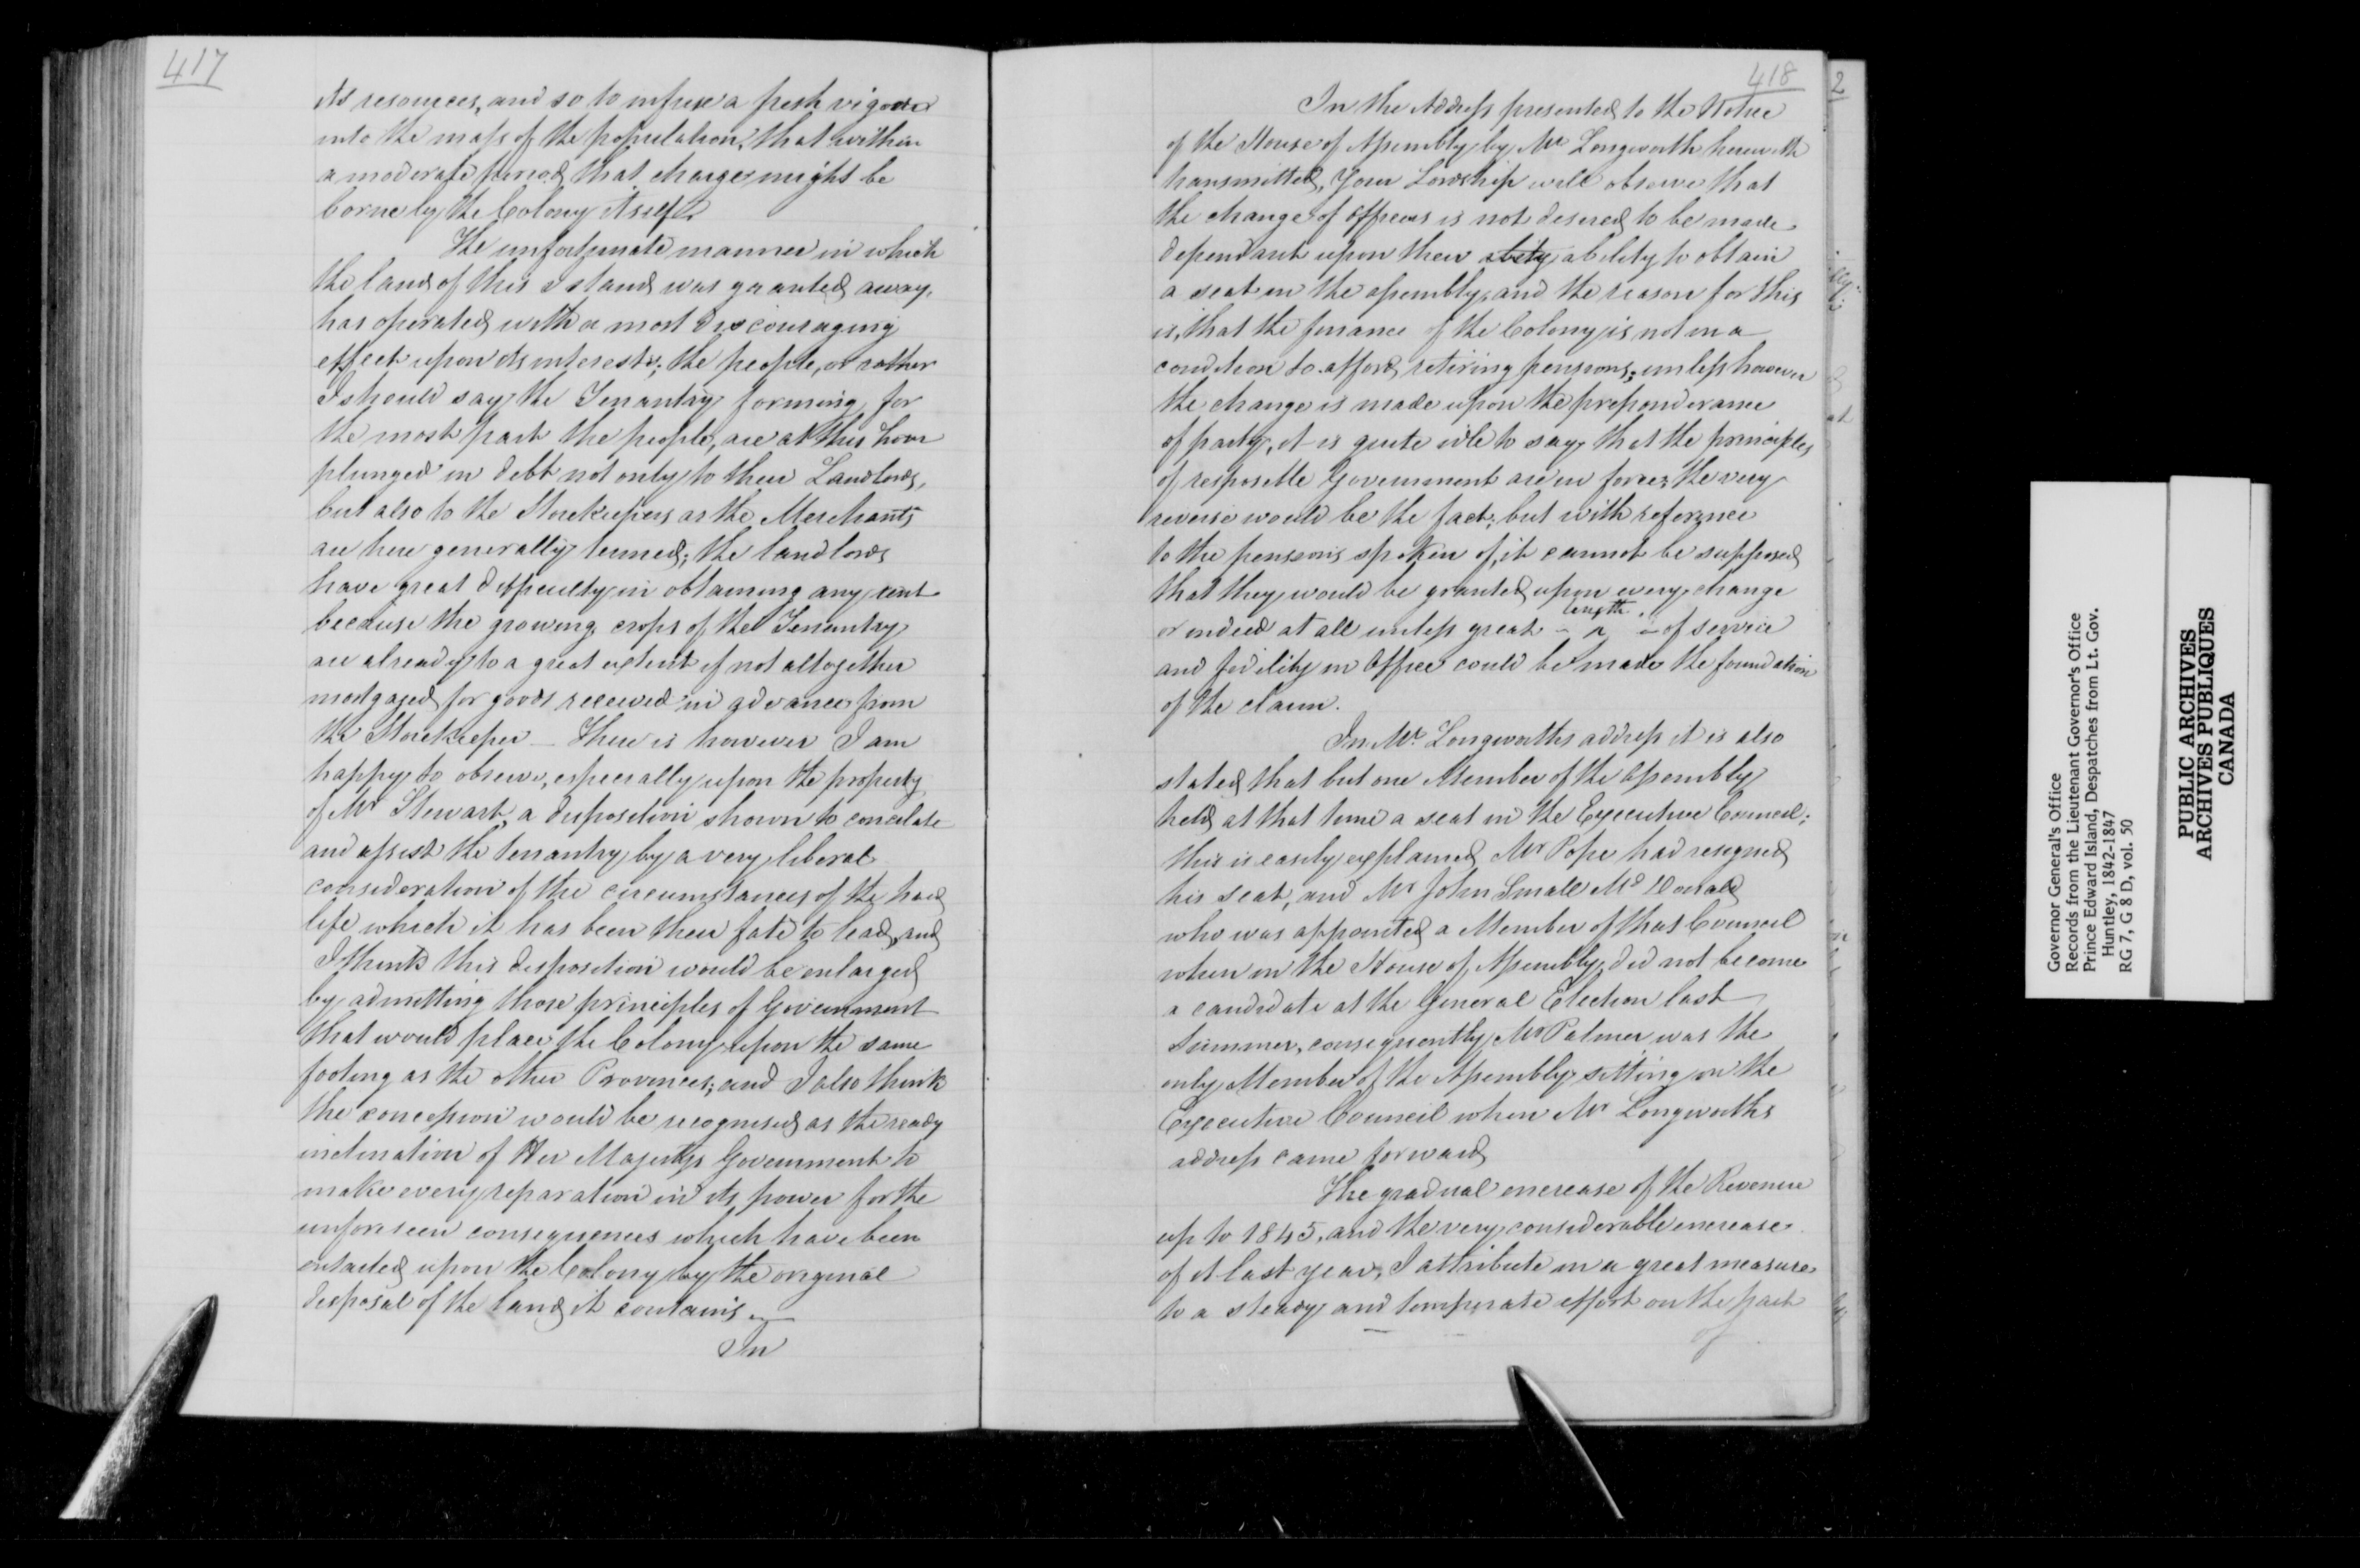 417
its resources, and so to infuse a fresh vigour
into the mass of the population, that within
a moderate period that charge might be
borne by the Colony itself.
The unfortunate manner in which
the land of this Island was granted away,
has operated with a most discouraging
effect upon its interests; the people, or rather
I should say the Tenantry forming for
the most part the people, are at this hour
plunged in debt not only to their Landlords,
but also to the Storekeepers as the Merchants
are here generally termed; the landlords
have great difficulty in obtaining any rent
because the growing crops of the Tenantry
are already to a great extent if not altogether
mortgaged for goods received in advance from
the Storekeeper – There is however I am
happy to observe, especially upon the property
of Mr Stewart, a disposition shown to concilate
and assist the tenantry by a very liberal
consideration of the circumstances of the hard
life which it has been their fate to lead, and
I think this disposition would be enlarged
by admitting those principles of Government
that would place the Colony upon the same
footing as the other Provinces; and I also think
the concession would be recognised as the ready
inclination of Her Majestys Government to
make every reparation in its power for the
unforeseen consequences which have been
entailed upon the Colony by the original
disposal of the land it contains.
In
418
In the Address presented to the Notice
of the House of Assembly by Mr Longworth herewith
transmitted, Your Lordship will observe that
the change of Officers is not desired to be made
dependant upon their ability to obtain
a seat in the assembly, and the reason for this
is, that the finance of the Colony is not in a
condition to afford retiring pensions; unless however
the change is made upon the preponderance
of party, it is quite idle to say that the principles
of resposible Government are in force; the very
reverse would be the fact; but with reference
to the pensions spoken of, it cannot be supposed
that they would be granted upon every change
or indeed at all unless great length of service
and fidility in Office could be made the foundation
of the claim.
In Mr Longworths address it is also
stated that but one Member of the Assembly
held at that time a seat in the Executive Council;
this is easily explained Mr Pope had resigned
his seat, and Mr John Small McDonald
who was appointed a Member of that Council
when in the House of Assembly, did not become
a candidate at the General Election last
Summer, consequently Mr Palmer was the
only Member of the Assembly sitting in the
Executive Council when Mr Longworths
address came forward
The gradual increase of the Revenue
up to 1845, and the very considerable encrease
of it last year, I attribute in a great measure
to a steady and temperate effort on the part
of
2
Governor General's Office
Records from the Lieutenant Governor's Office
Prince Edward Island, Despatches from Lt. Gov.
Huntley, 1842-1847
RG 7, G 8 D, vol. 50
PUBLIC ARCHIVES
ARCHIVES PUBLIQUES
CANADA